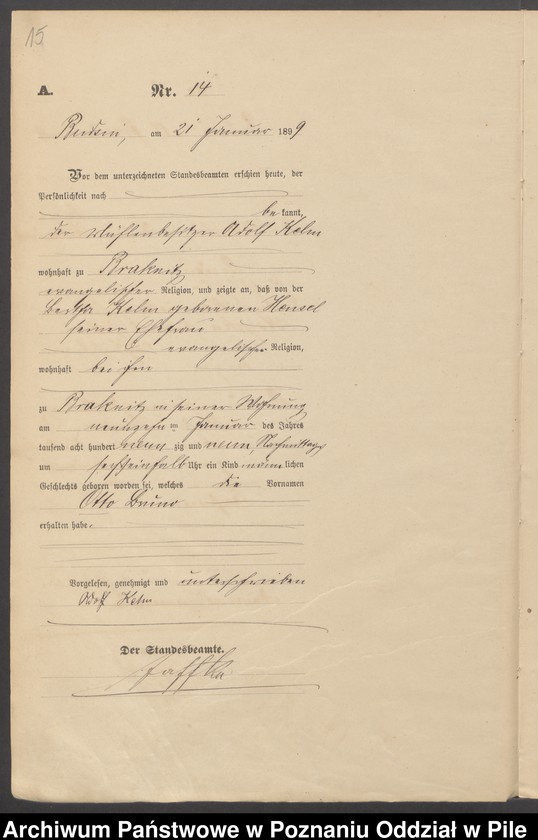 15
A. Nr. 14
am 21 Januar 1899
Vor dem unterzeichneten Standesbeamten erschien heute, der
Persönlichkeit nach
bekannt,
der Mühlenbesitzer Adolf Kelm
wohnhaft zu Braknitz
evangelischer Religion, und zeigte an, daß von der
Bertha Kelm geborenen Hensel
seiner Ehefrau
evangelischer Religion,
wohnhaft bei ihm
zu Braknitz in seiner Wohnung
am neunzehnten Januar des Jahres
tausend acht hundert neunzig und neun, Nachmittags
um Uhr ein Kind männlichen
Geschlechts geboren worden sei, welches die Vornamen
Otto Bruno
erhalten habe.
Vorgelesen, genehmigt und unterschrieben
Adolf Kelm
Der Standesbeamte.
Archiwum Państwowe w Poznaniu Oddział w Pile